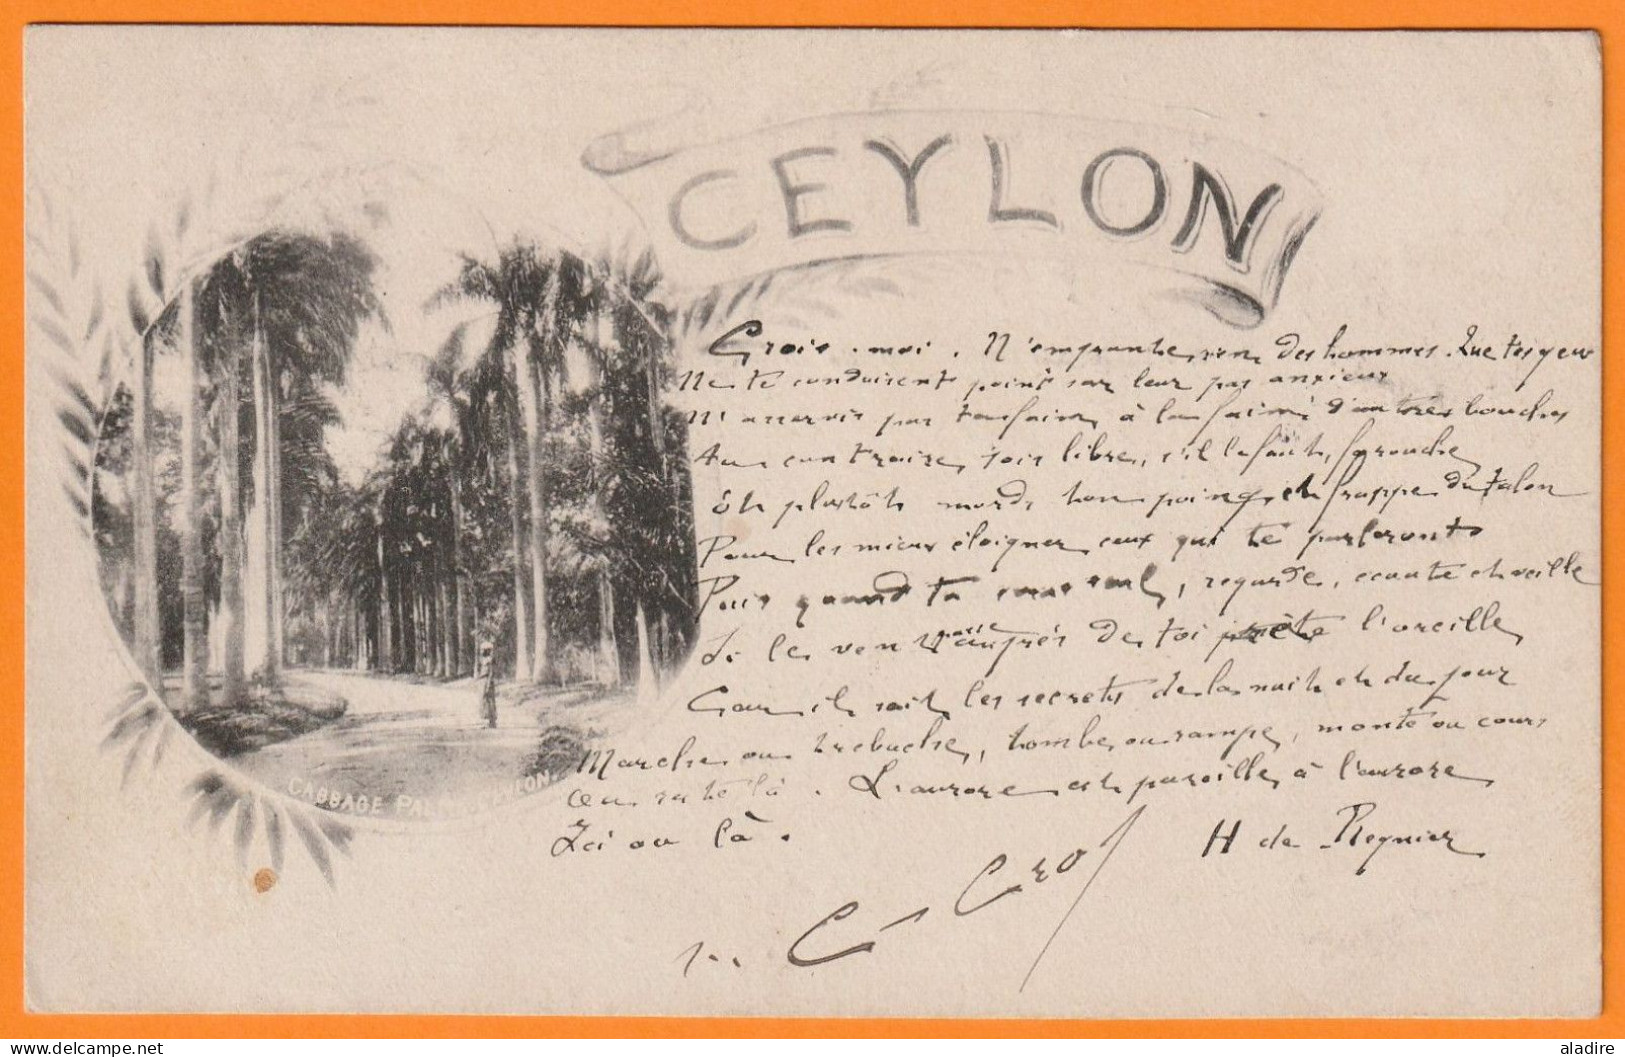 CEYLON
Crois-moi. N'emprunte rien des hommes. Que tes yeux
Ne te conduisent point sur leur pas anxieux
N'asservis pas ta faim à la faim d'autres bouches
Au contraire, sois libre, s'il le faut, farouche,
Et plutôt mords ton poing et frappe du talon
Pour les mieux éloigner ceux qui te parleront
Puis quand tu seras seul, regarde, écoute et veille
Si le vent varie auprès de toi prête l'oreille
Car il sait les secrets de la nuit et du jour
Marche ou trebuche, tombe ou rampe, monte ou cours
Ou reste là. L'aurore est pareille à l'aurore
Ici ou là.
H de Regnier
CABBAGE PALMS CEYLON.
aladire